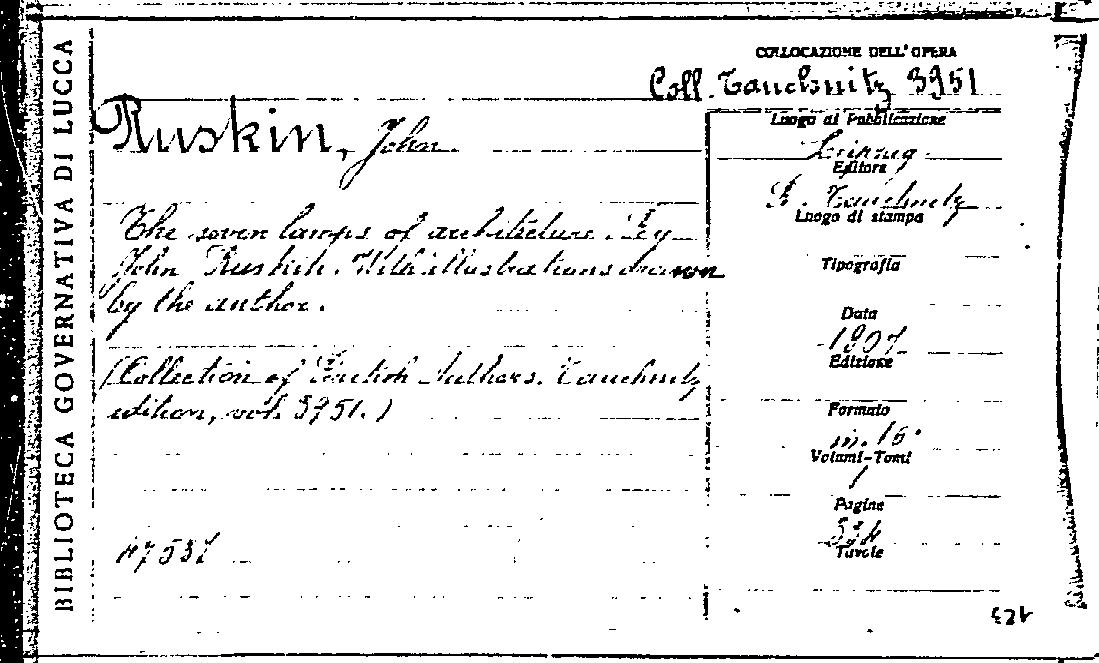 BIBLIOTECA GOVERNATIVA DI LUCCA
COLLOCAZIONE DELL'OPERA
Coll. Tauchnitz 3951
Ruskin, John
The seven lamps of architecture. By
John Ruskin. With illustrations drawn
by the author.
(Collection of British Authors. Tauchnitz
edition, vol. 3951.)
Luogo di Pubblicazione
Leipzig
Editore
B. Tauchnitz
Luogo di stampa
Tipografia
Data
1907
Edizione
Formato
in. 16°
Volumi-Tomi
1
Pagine
334
Tavole